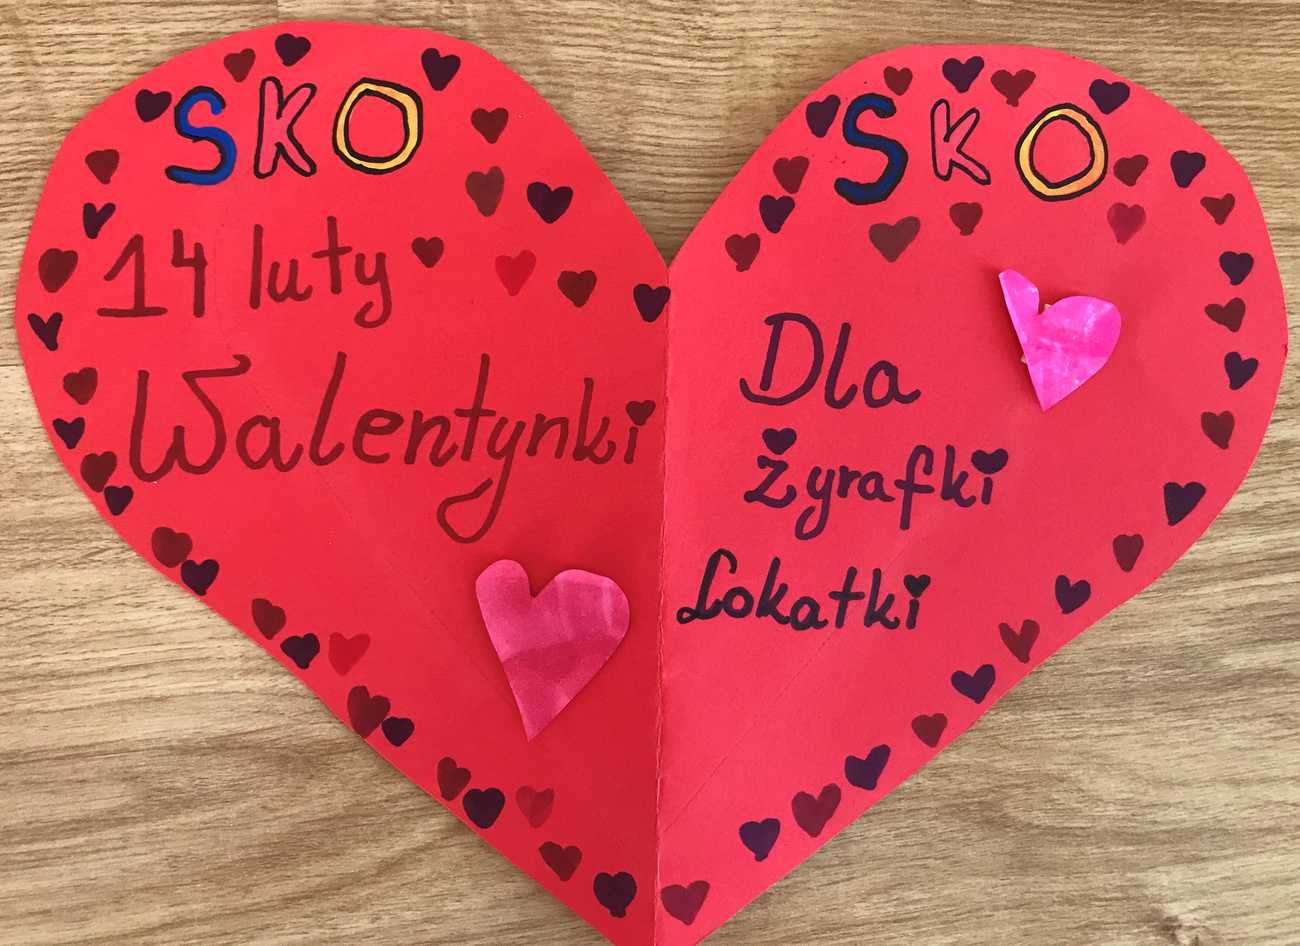 SKO
14 luty
Walentynki
SKO
Dla
żyrafki
Lokatki